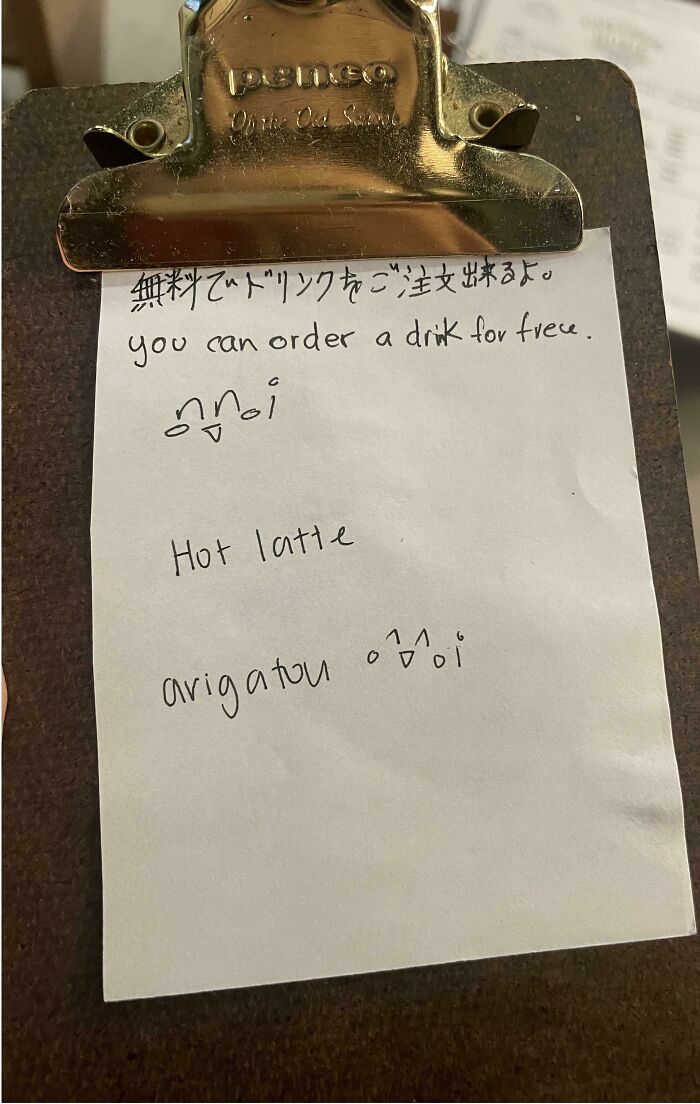 penco
On the Old School
無料でドリンクをご注文出来るよ。
you can order a drik for free.
Hot latte
arigatou